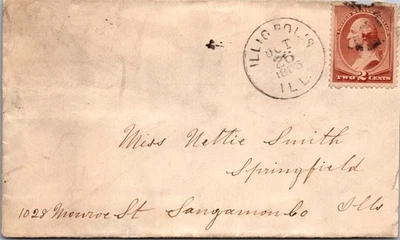 ILLIOPOLIS
OCT
20
ILL.
TWO 2 CENTS
Miss Nettie Smith
Springfield
1028 Monroe St Sangamon Co Ills